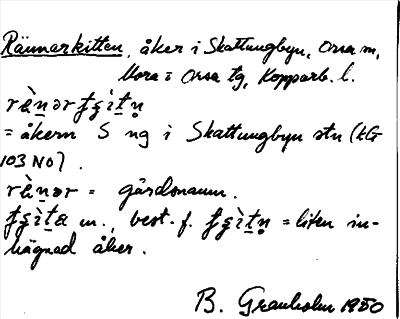 Rännarkitten, åker i Skattungbyn, Orsa sn,
Mora o Orsa tg, Kopparb. l.
rὲṉər ꞓʂìṯn̥
= åkern S ng i Skattungbyn stn (kG
103 NO).
rὲṉər = gårdsnamn.
ꞓʂìṯa m., best. f. ꞓʂìṯn̥ = liten in-
hägnad åker.
B. Granholm 1950